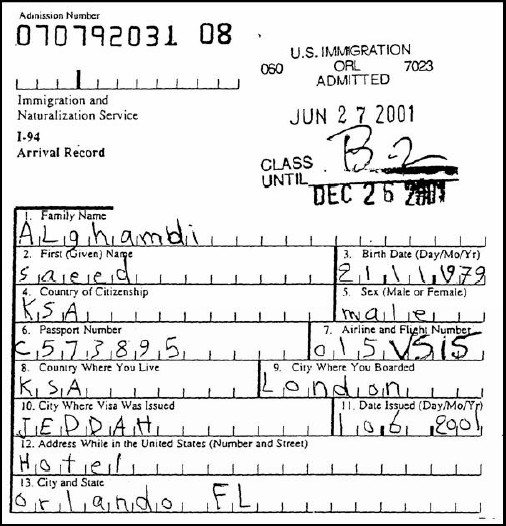 Admission Number
070792031 08
U.S. IMMIGRATION
060 ORL 7023
ADMITTED
Immigration and
Naturalization Service
JUN 27 2001
I-94
Arrival Record
CLASS B-2
UNTIL DEC 26 2001
1. Family Name
ALghamdi
2. First (Given) Name
saeed
3. Birth Date (Day/Mo/Yr)
4. Country of Citizenship
KSA
5. Sex (Male or Female)
male
6. Passport Number
C573895
7. Airline and Flight Number
015 VS15
8. Country Where You Live
KSA
9. City Where You Boarded
London
10. City Where Visa Was Issued
JEDDAH
11. Date Issued (Day/Mo/Yr)
12. Address While in the United States (Number and Street)
Hotel
13. City and State
orlando FL